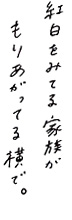 紅白をみてる家族が
もりあがってる横で。